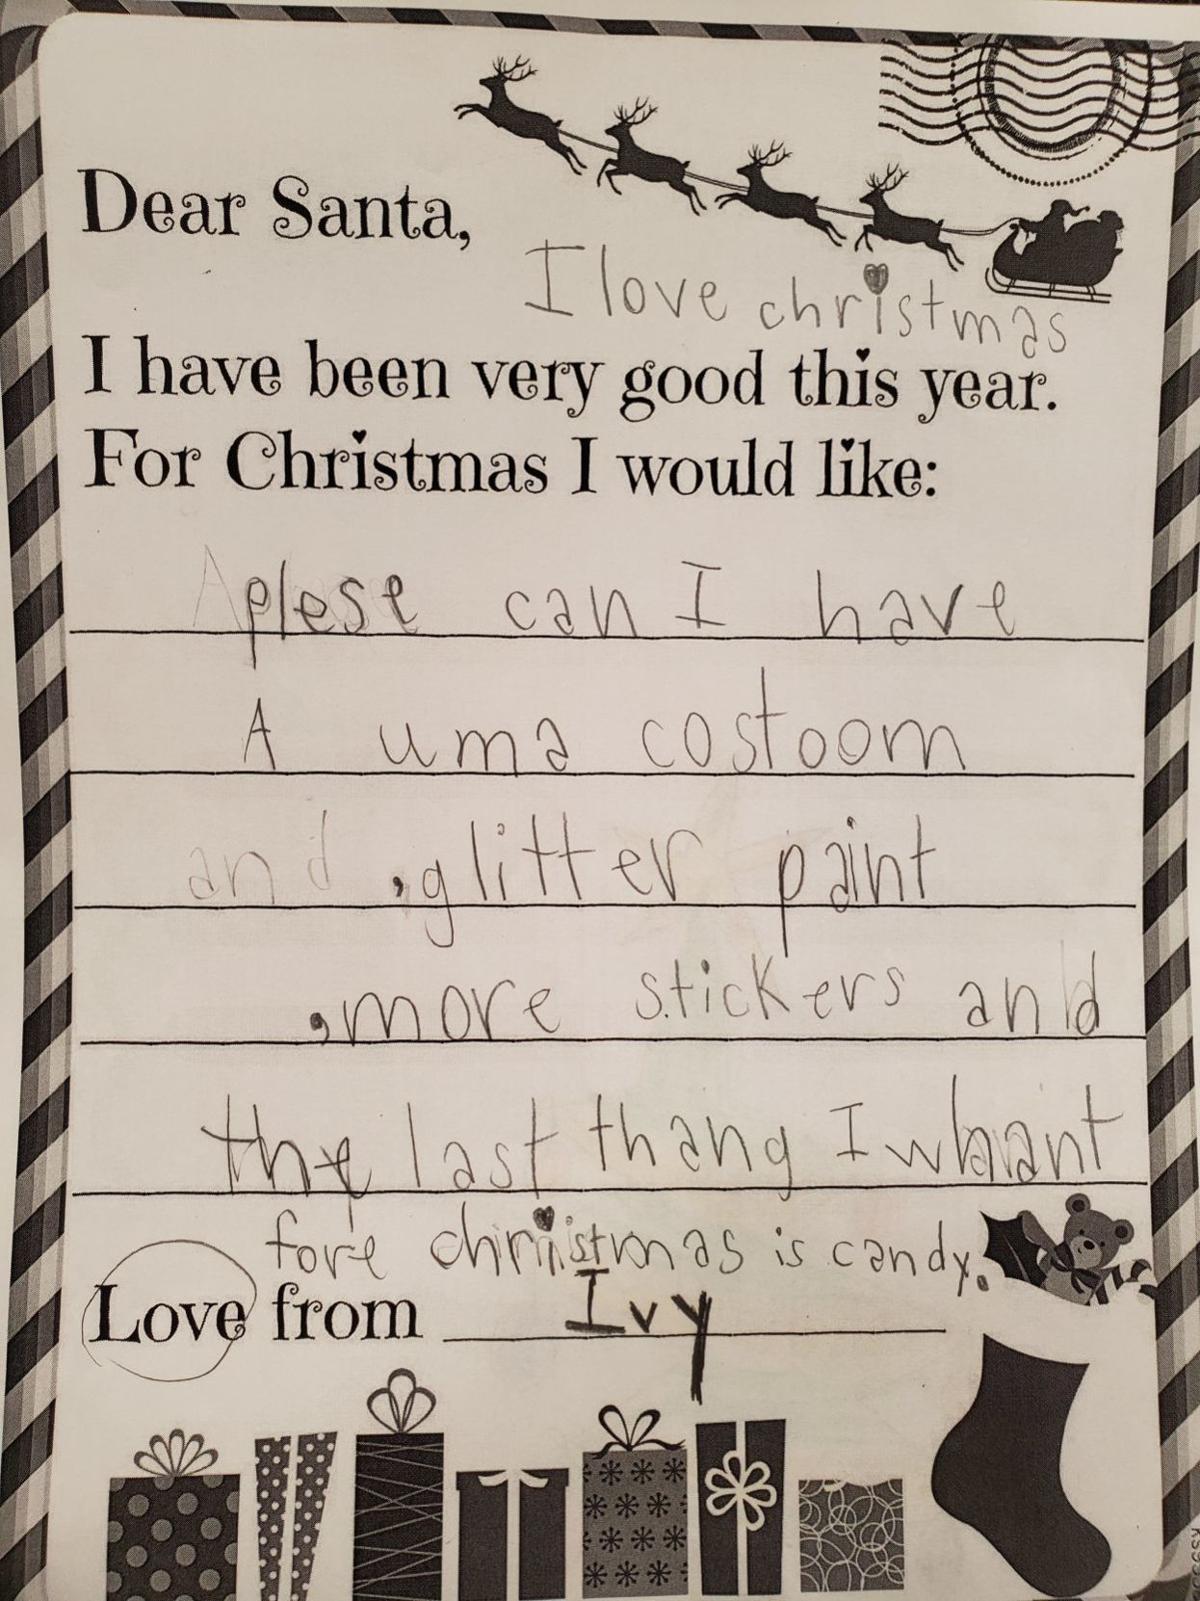 Dear Santa,
I love christmas
I have been very good this year.
For Christmas I would like:
plese can I have
A uma costoom
and ,glitter paint
,more stickers and
the last thang I whant
fore christmas is candy.
Love from Ivy